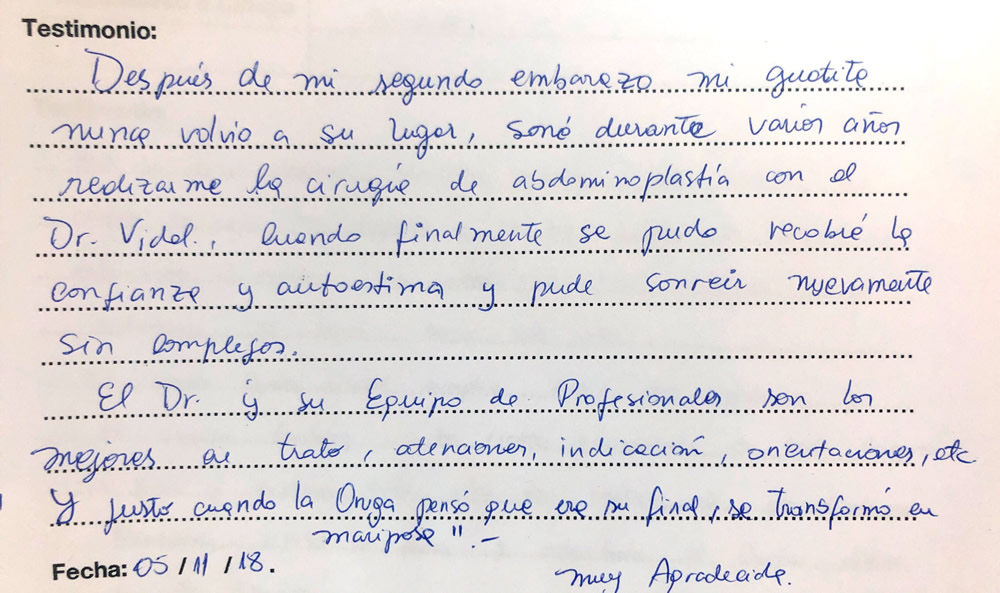 Testimonio:
Después de mi segundo embarazo mi guatita
nunca volvio a su lugar, soñé durante varios años
realizarme la cirugía de abdominoplastía con el
Dr. Vidal., Cuando finalmente se pudo recobré la
confianza y autoestima y pude sonreir nuevamente
sin complejos.
El Dr. y su Equipo de Profesionales son los
mejores en trato, atenciones, indicación, orientaciones, etc
Y justo cuando la Oruga pensó que era su final, se transformó en
mariposa".-
Fecha: 05/11/18.
muy Agradecida.